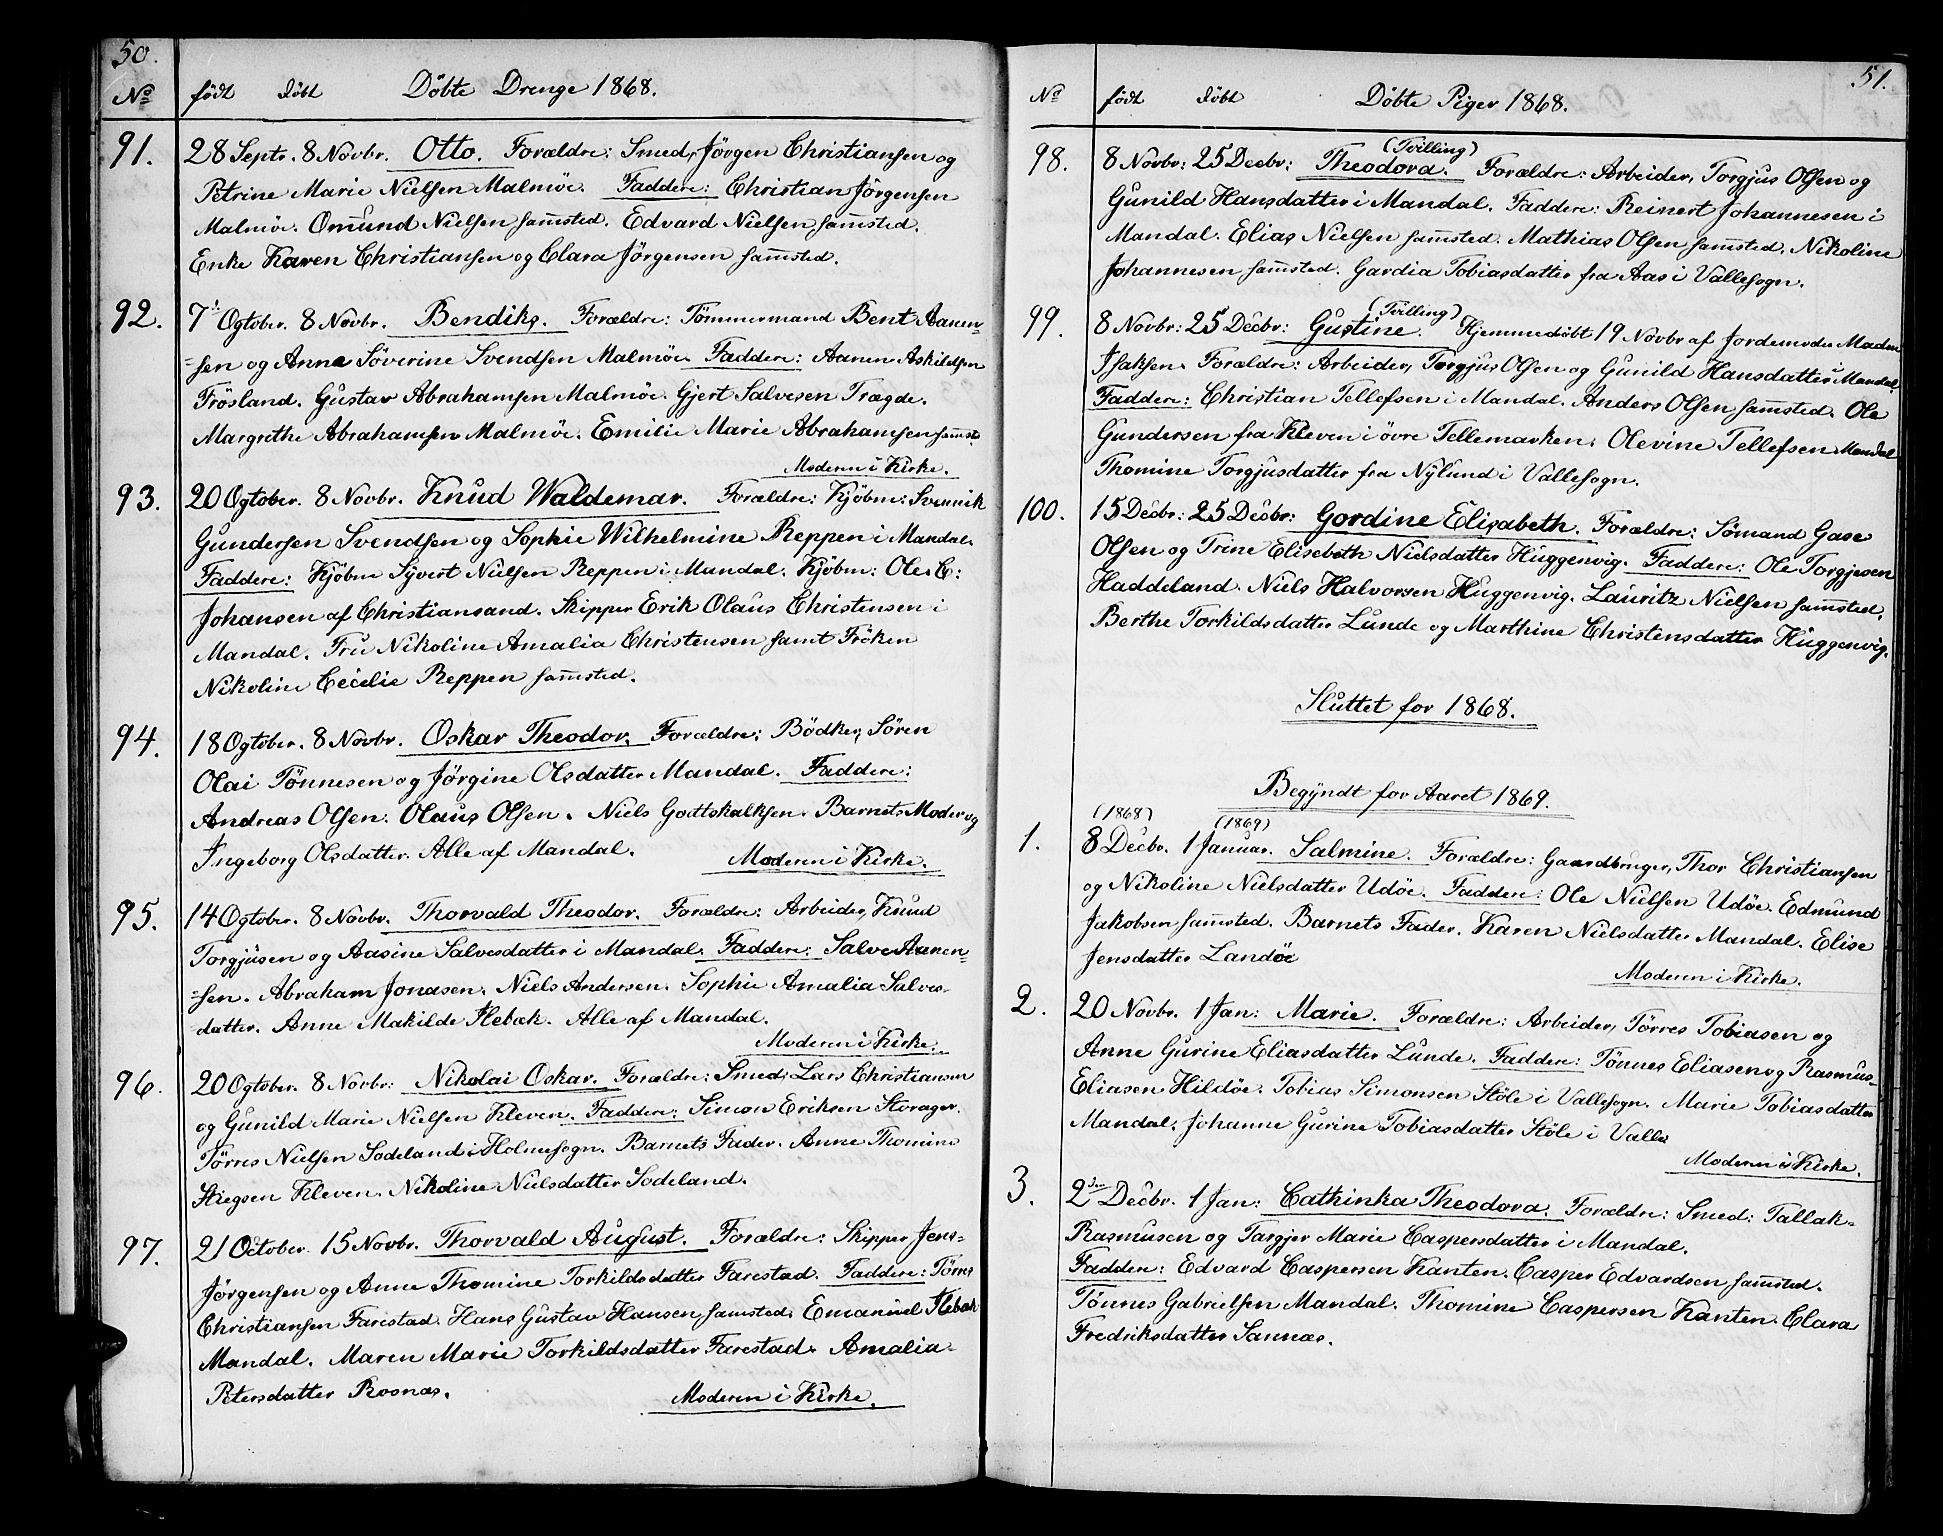 50.
No født døbt Døbte Drenge 1868.
91. 28 Septr. 8 Novbr. Otto. Forældre: Smed, Jörgen Christiansen og
Petrine Marie Nielsen Malmöe. Faddere: Christian Jörgensen
Malmöe. Omund Nielsen sam̄sted. Edvard Nielsen sam̄sted.
Enke Karen Christiansen og Clara Jörgensen sam̄sted.
92. 7de Ogtober. 8 Novbr. Bendiks. Forældre: Tömmermand Bent Aanen-
-sen og Anne Söverine Svendsen Malmöe. Faddere: Aanen Askildsen
Frösland. Gustav Abrahamsen Malmöe. Gjert Salvesen Trægde.
Margrethe Abrahamsen Malmöe. Emilie Marie Abrahamsen samst.
Moderen i Kirke.
93. 20 Ogtober. 8 Novbr. Knud Waldemar. Forældre: Kjöbm: Svennik
Gundersen Svendsen og Sophie Wilhelmine Reppen i Mandal.
Faddere: Kjöbm Syvert Nielsen Reppen i Mandal. Kjöbm: Ole C:
Johansen af Christiansand. Skipper Erik Olaus Christensen i
Mandal. Fru Nikoline Amalia Christensen samt Fröken
Nikoline Cecilie Reppen sam̄sted.
94. 18 Ogtober. 8 Novbr. Oskar Theodor. Forældre: Bödker, Sören
Olai Tönnesen og Jörgine Olsdatter Mandal. Faddere:
Andreas Olsen. Olaus Olsen. Niels Gottskalksen. Barnets Moder og
Ingeborg Olsdatter. Alle af Mandal. Moderen i Kirke.
95. 14 Ogtober. 8 Novbr. Thorvald Theodor. Forældre: Arbeider, Knud
Torgjusen og Aasine Salvesdatter i Mandal. Faddere: Salve Aanen-
-sen. Abraham Jonasen. Niels Andersen. Sophie Amalia Salves-
datter. Anne Makilde Flebæk. Alle af Mandal.
Moderen i Kirke.
96. 20 Ogtober. 8 Novbr: Nikolai Oskar. Forældre: Smed, Lars Christiansen
og Gunild Marie Nielsen Kleven. Faddere: Simon Eriksen Storager.
Törres Nielsen Sodeland i Holmesogn. Barnets Fader. Anne Thomine
Stiegsen Kleven. Nikoline Nielsdatter Sodeland.
97. 21 October. 15 Novbr. Thorvald August. Forældre: Skipper Jens
Jörgensen og Anne Thomine Torkildsdatter Farestad. Faddere: Törres
Christiansen Farestad. Hans Gustav Hansen, sam̄sted. Emanuel Flebæk
Mandal. Maren Marie Torkildsdatter Farestad. Amalia
Petersdatter Rosnæs. Moderen i Kirke.
51.
No født døbt Döbte Piger 1868.
(Tvilling)
98. 8 Novbr: 25 Decbr: Theodora. Forældre: Arbeider, Torgjus Olsen og
Gunild Hansdatter i Mandal. Faddere: Reinert Johannesen i
Mandal. Elias Nielsen sam̄sted. Mathias Olsen sam̄sted. Nikoline
Johannesen sam̄sted. Gardia Tobiasdatter fra Aas i Vallesogn.
(Tvilling)
99. 8 Novbr: 25 Decbr: Gustine. Hjemmedöbt 19 Novbr af Jordemoder Madm
Isaksen. Forældre: Arbeider, Torgjus Olsen og Gunild Hansdatter i Mandal.
Faddere: Christian Tellefsen i Mandal. Anders Olsen sam̄sted. Ole
Gundersen fra Kleven i övre Tellemarken. Olevine Tellefsen Mandal
Thomine Torgjusdatter fra Nylund i Vallesogn.
100. 15 Decbr: 25 Decbr: Gordine Elisabeth. Forældre: Sömand Gase
Olsen og Trine Elisebeth Nielsdatter Huggenvig. Faddere: Ole Torgjesen
Haddeland. Niels Halvorsen Huggenvig. Lauritz Nielsen sam̄sted.
Berthe Torkildsdatter Lunde og Marthine Christensdatter Huggenvig.
Sluttet for 1868.
Begyndt for Aaret 1869.
(1868) (1869)
1. 8 Decbr. 1 Januar. Salmine. Forældre: Gaardbruger, Thor Christiansen
og Nikoline Nielsdatter Udöe. Faddere: Ole Nielsen Udöe. Edmund
Jakobsen sam̄sted. Barnets Fader. Karen Nielsdatter Mandal. Elise
Jensdatter Landöe
Moderen i Kirke.
2. 20 Novbr. 1 Jan: Marie. Forældre: Arbeider, Törres Tobiasen og
Anne Gurine Eliasdatter Lunde. Faddere: Tönnes Eliasen og Rasmus
Eliasen Hildöe. Tobias Simonsen Stöle i Vallesogn. Marie Tobiasdatter
Mandal. Johanne Gurine Tobiasdatter Stöle i Valle
Moderen i Kirke.
3. 2den Decbr. 1 Jan: Cathinka Theodora. Forældre: Smed: Tallak
Rasmusen og Targjer Marie Caspersdatter i Mandal.
Faddere: Edvard Caspersen Kanten. Casper Edvardsen sam̄sted.
Tönnes Gabrielsen Mandal. Thomine Caspersen Kanten. Clara
Fredriksdatter Sannæs.